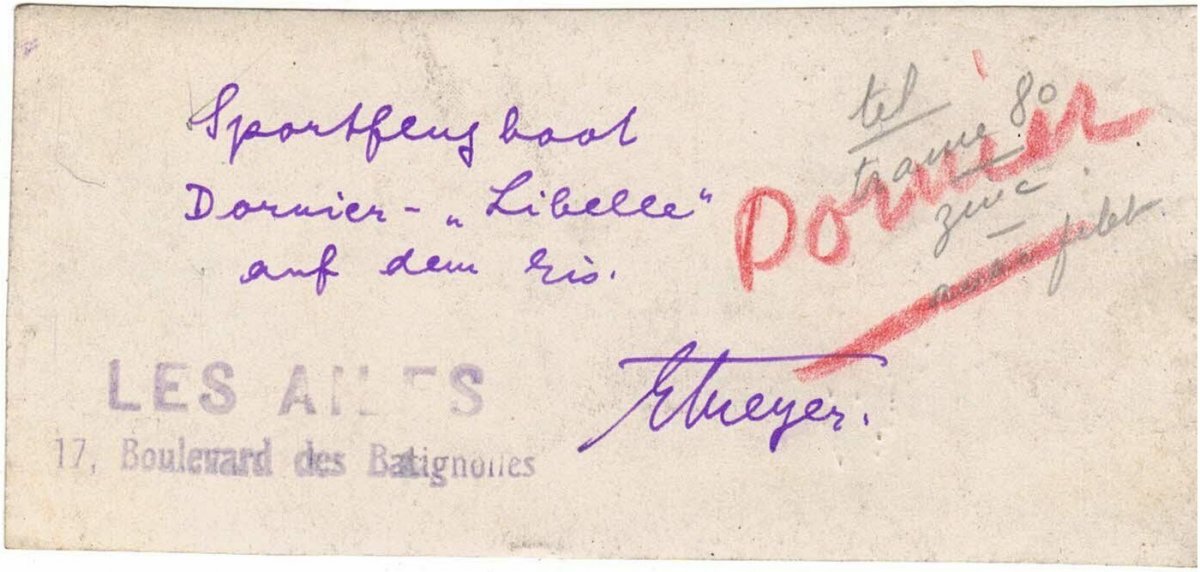 Sportflugboot
Dornier - „Libelle“
auf dem Eis.
tel
trame 80
zinc
filet
Dornier
LES AILES
17, Boulevard des Batignolles